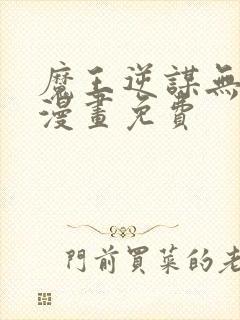 魔王逆謀無
漫畫免費
門前買菜的老